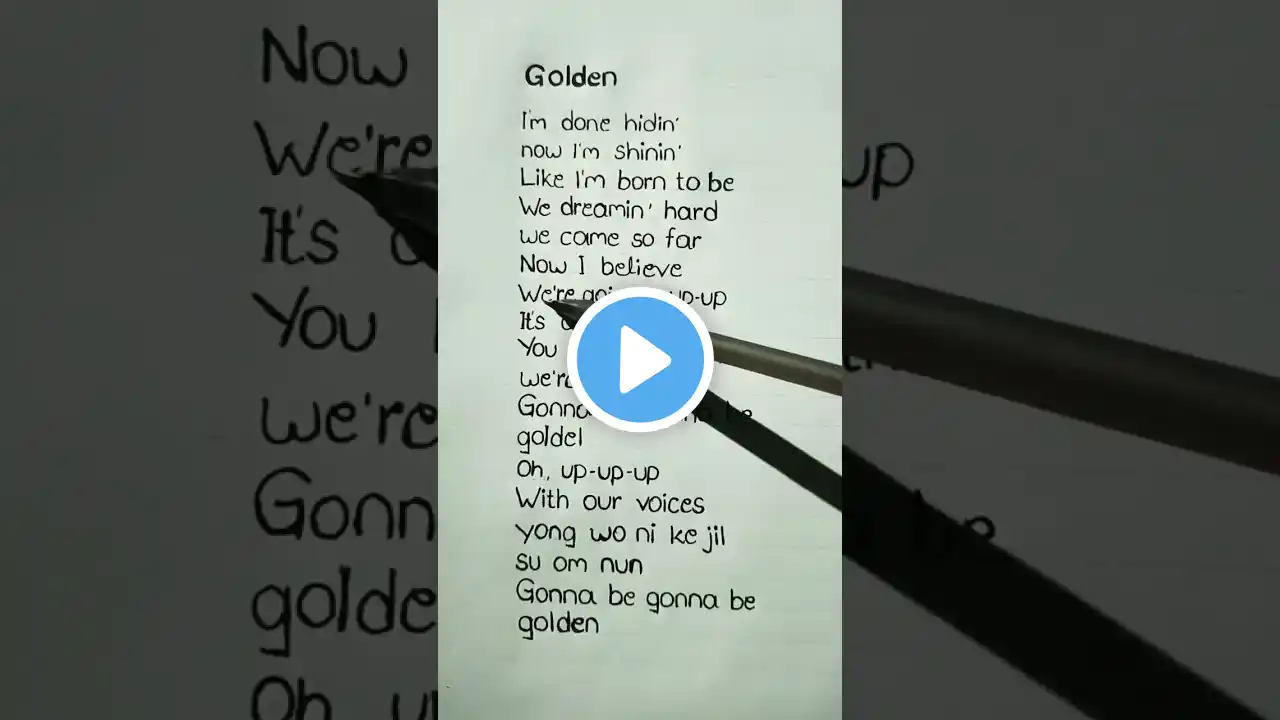 Golden
I'm done hidin'
now I'm shinin'
Like I'm born to be
We dreamin' hard
we came so far
Now I believe
We're up-up
It's
You
we're
Gonna be
goldel
Oh, up-up-up
With our voices
yong wo ni ke jil
su om nun
Gonna be gonna be
golden